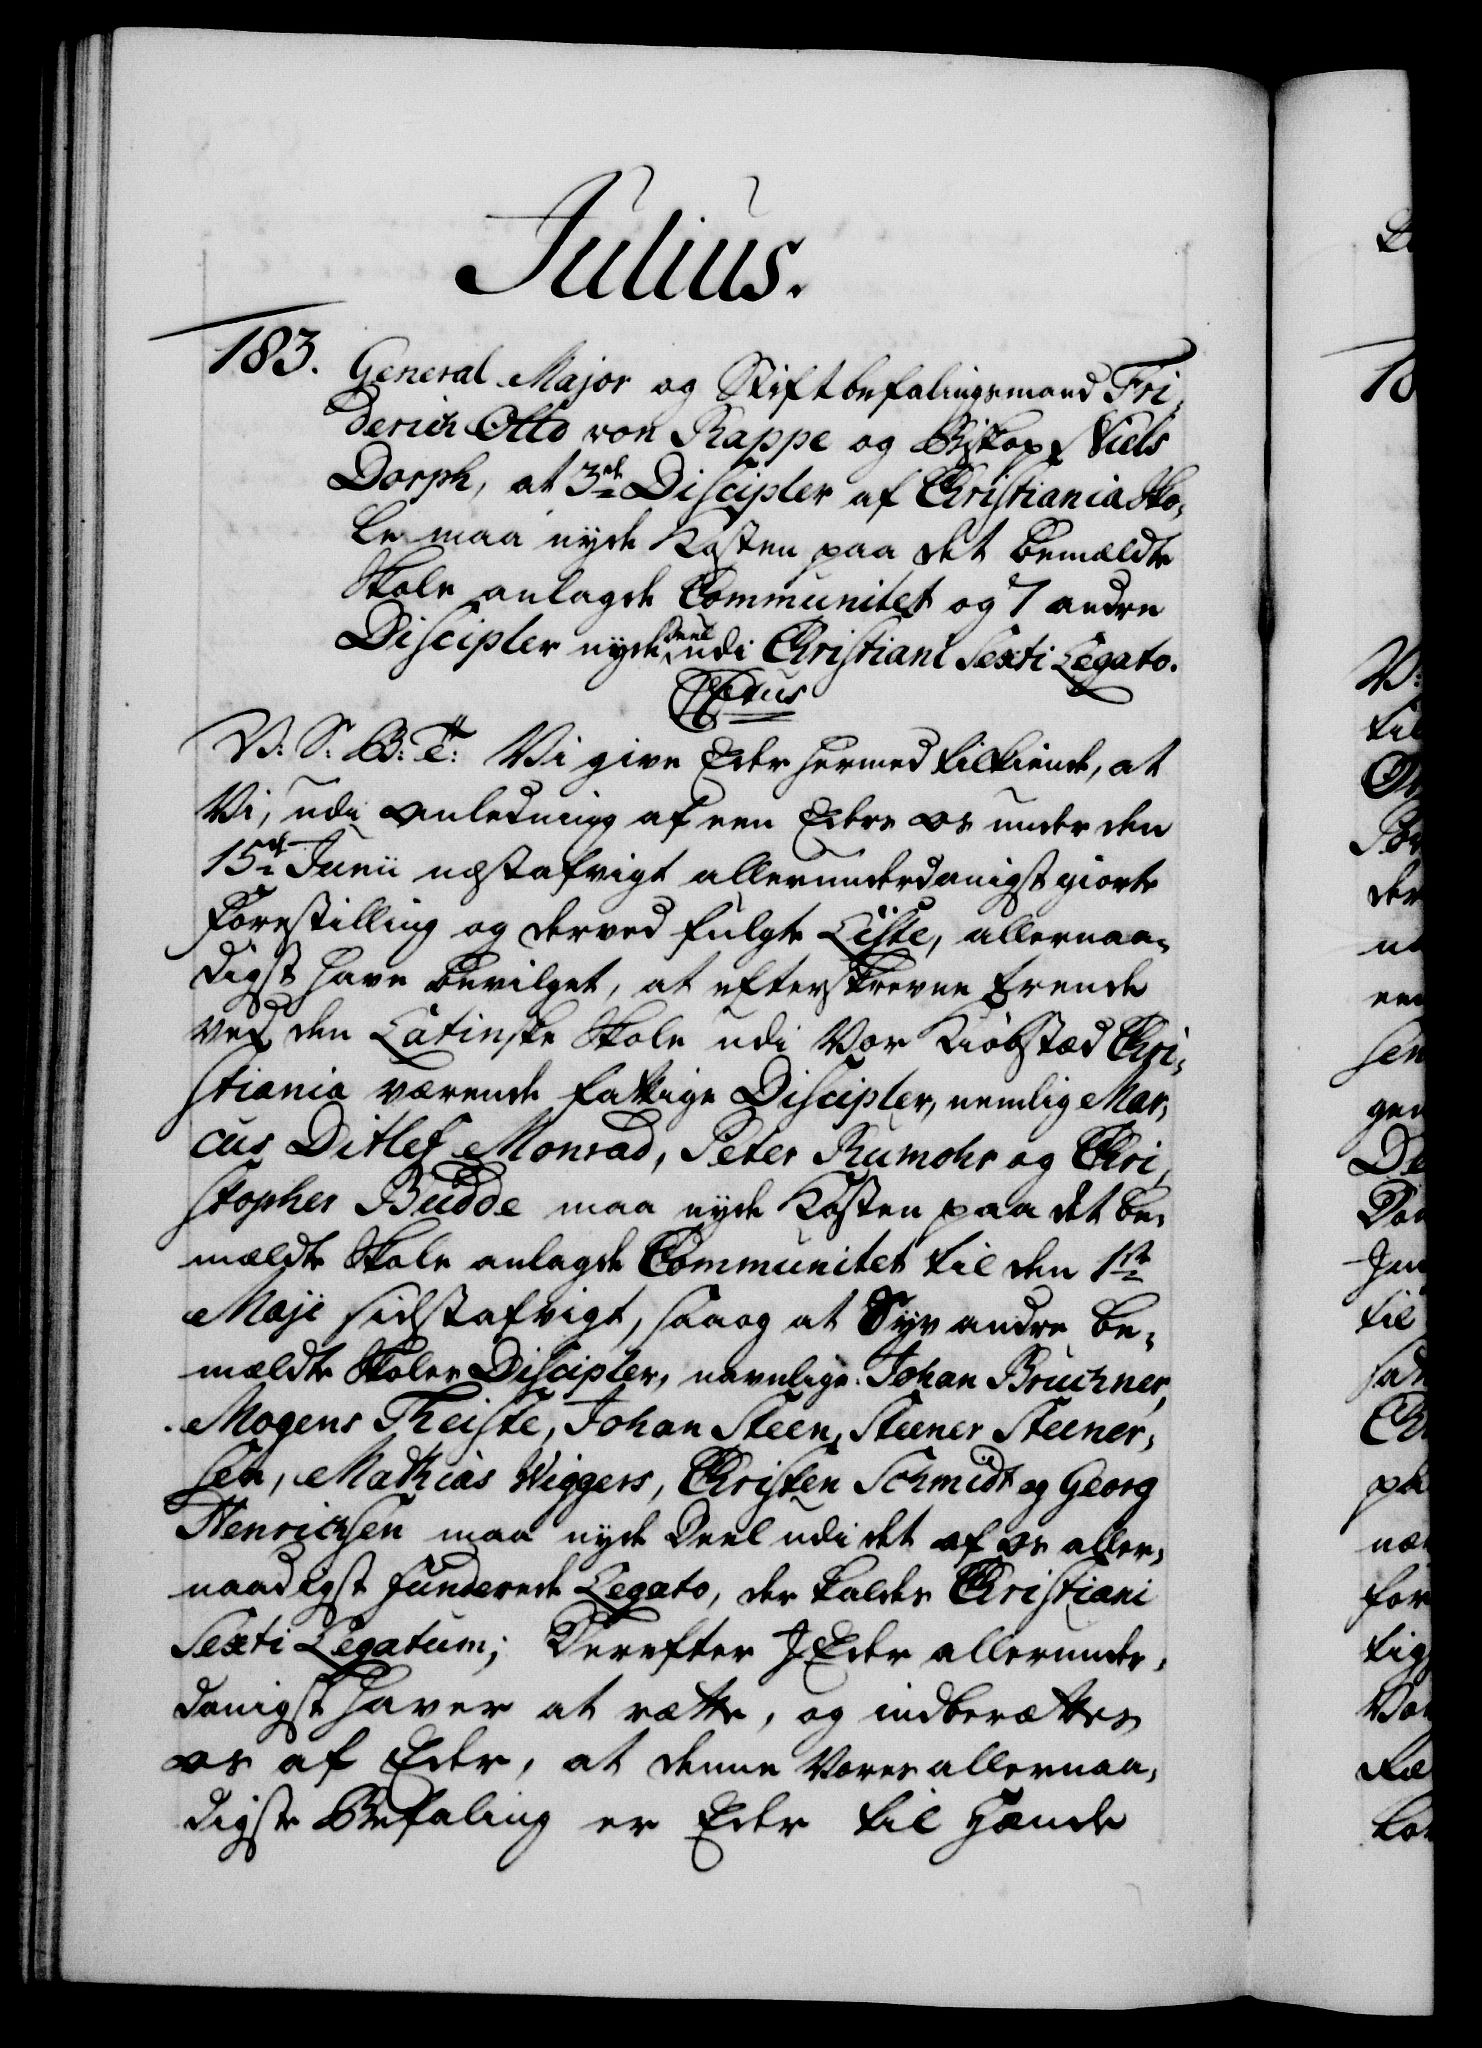 Julius.
183. General Major og Stiftbefalingsmand Fri-
derich Otto von Rappe og Biskop Niels
Dorph, at 3de Discipler af Christiania Sko-
le maa nyde Kosten paa det bemældte
Skole anlagde Communitet og 7 andre
Discipler nyde Deel udi Christiani Sexti Legato.
C 6tus
V: S: B: T: Vi give Eder hermed tilkiende, at
Vi, udi Anledning af een Eders os under den
15de Junii næstafvigt allerunderdanigst giorte
Forestilling og derved fulgte Liste, allernaa-
digst have bevilget, at efterskrevne trende
ved den Latinske Skole udi Vor Kiøbstæd Chri-
stiania værende fattige Discipler, nemlig Mar-
cus Ditlef Monrad, Peter Rumohr og Chri-
stopher Budde maa nyde Kosten paa det be-
mældte Skole anlagde Communitet til den 1ste
Maji sidstafvigt, saa og at Syv andre be-
mældte Skoles Discipler, navnlige: Johan Bruchner,
Mogens Theiste, Johan Steen, Steener Steener-
sen, Mathias Wiggers, Christen Schmidt og Georg
Henrichsen maa nyde Deel udi det af os aller-
naadigst funderede Legato, der kaldes Christiani
Sexti Legatum; Derefter I Eder allerunder-
danigst haver at rætte, og indberættes
os af Eder, at denne Vores allernaa-
digste Befaling er Eder til Hænde